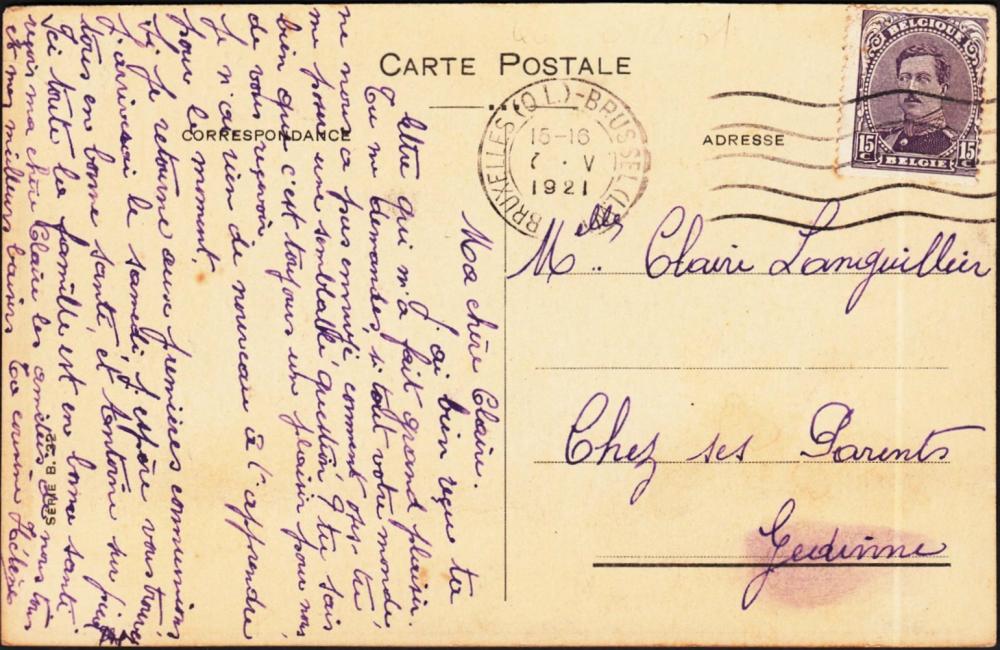 CARTE POSTALE
CORRESPONDANCE
ADRESSE
BELGIQUE
15 C
15 C
BELGIË
BRUXELLES (Q.L.)-BRUSSEL (L.
15-16
7 · V
1921
Ma chère Claire.
J'ai bien reçue ta
lettre qui m'a fait grand plaisir.
Tu me demandes, si tout votre monde,
ne nous a pas ennuyé, comment oses-tu
me poser une semblable question, tu sais
bien que c'est toujours un plaisir pour nous
de vous revoir.
Je n'ai rien de nouveau à t'apprendre
pour le moment.
Si je retourne aux premières communions
j'arriverai le samedi, j'espère vous trouver
tous en bonne santé, et sur pied
Ici toute la famille est en bonne santé.
reçois ma chère Claire les amitiés de nous tous
et mes meilleurs baisers Ta cousine Hélène
SÉRIE B.
Melle Claire Languillier
Chez ses Parents
Gedinne